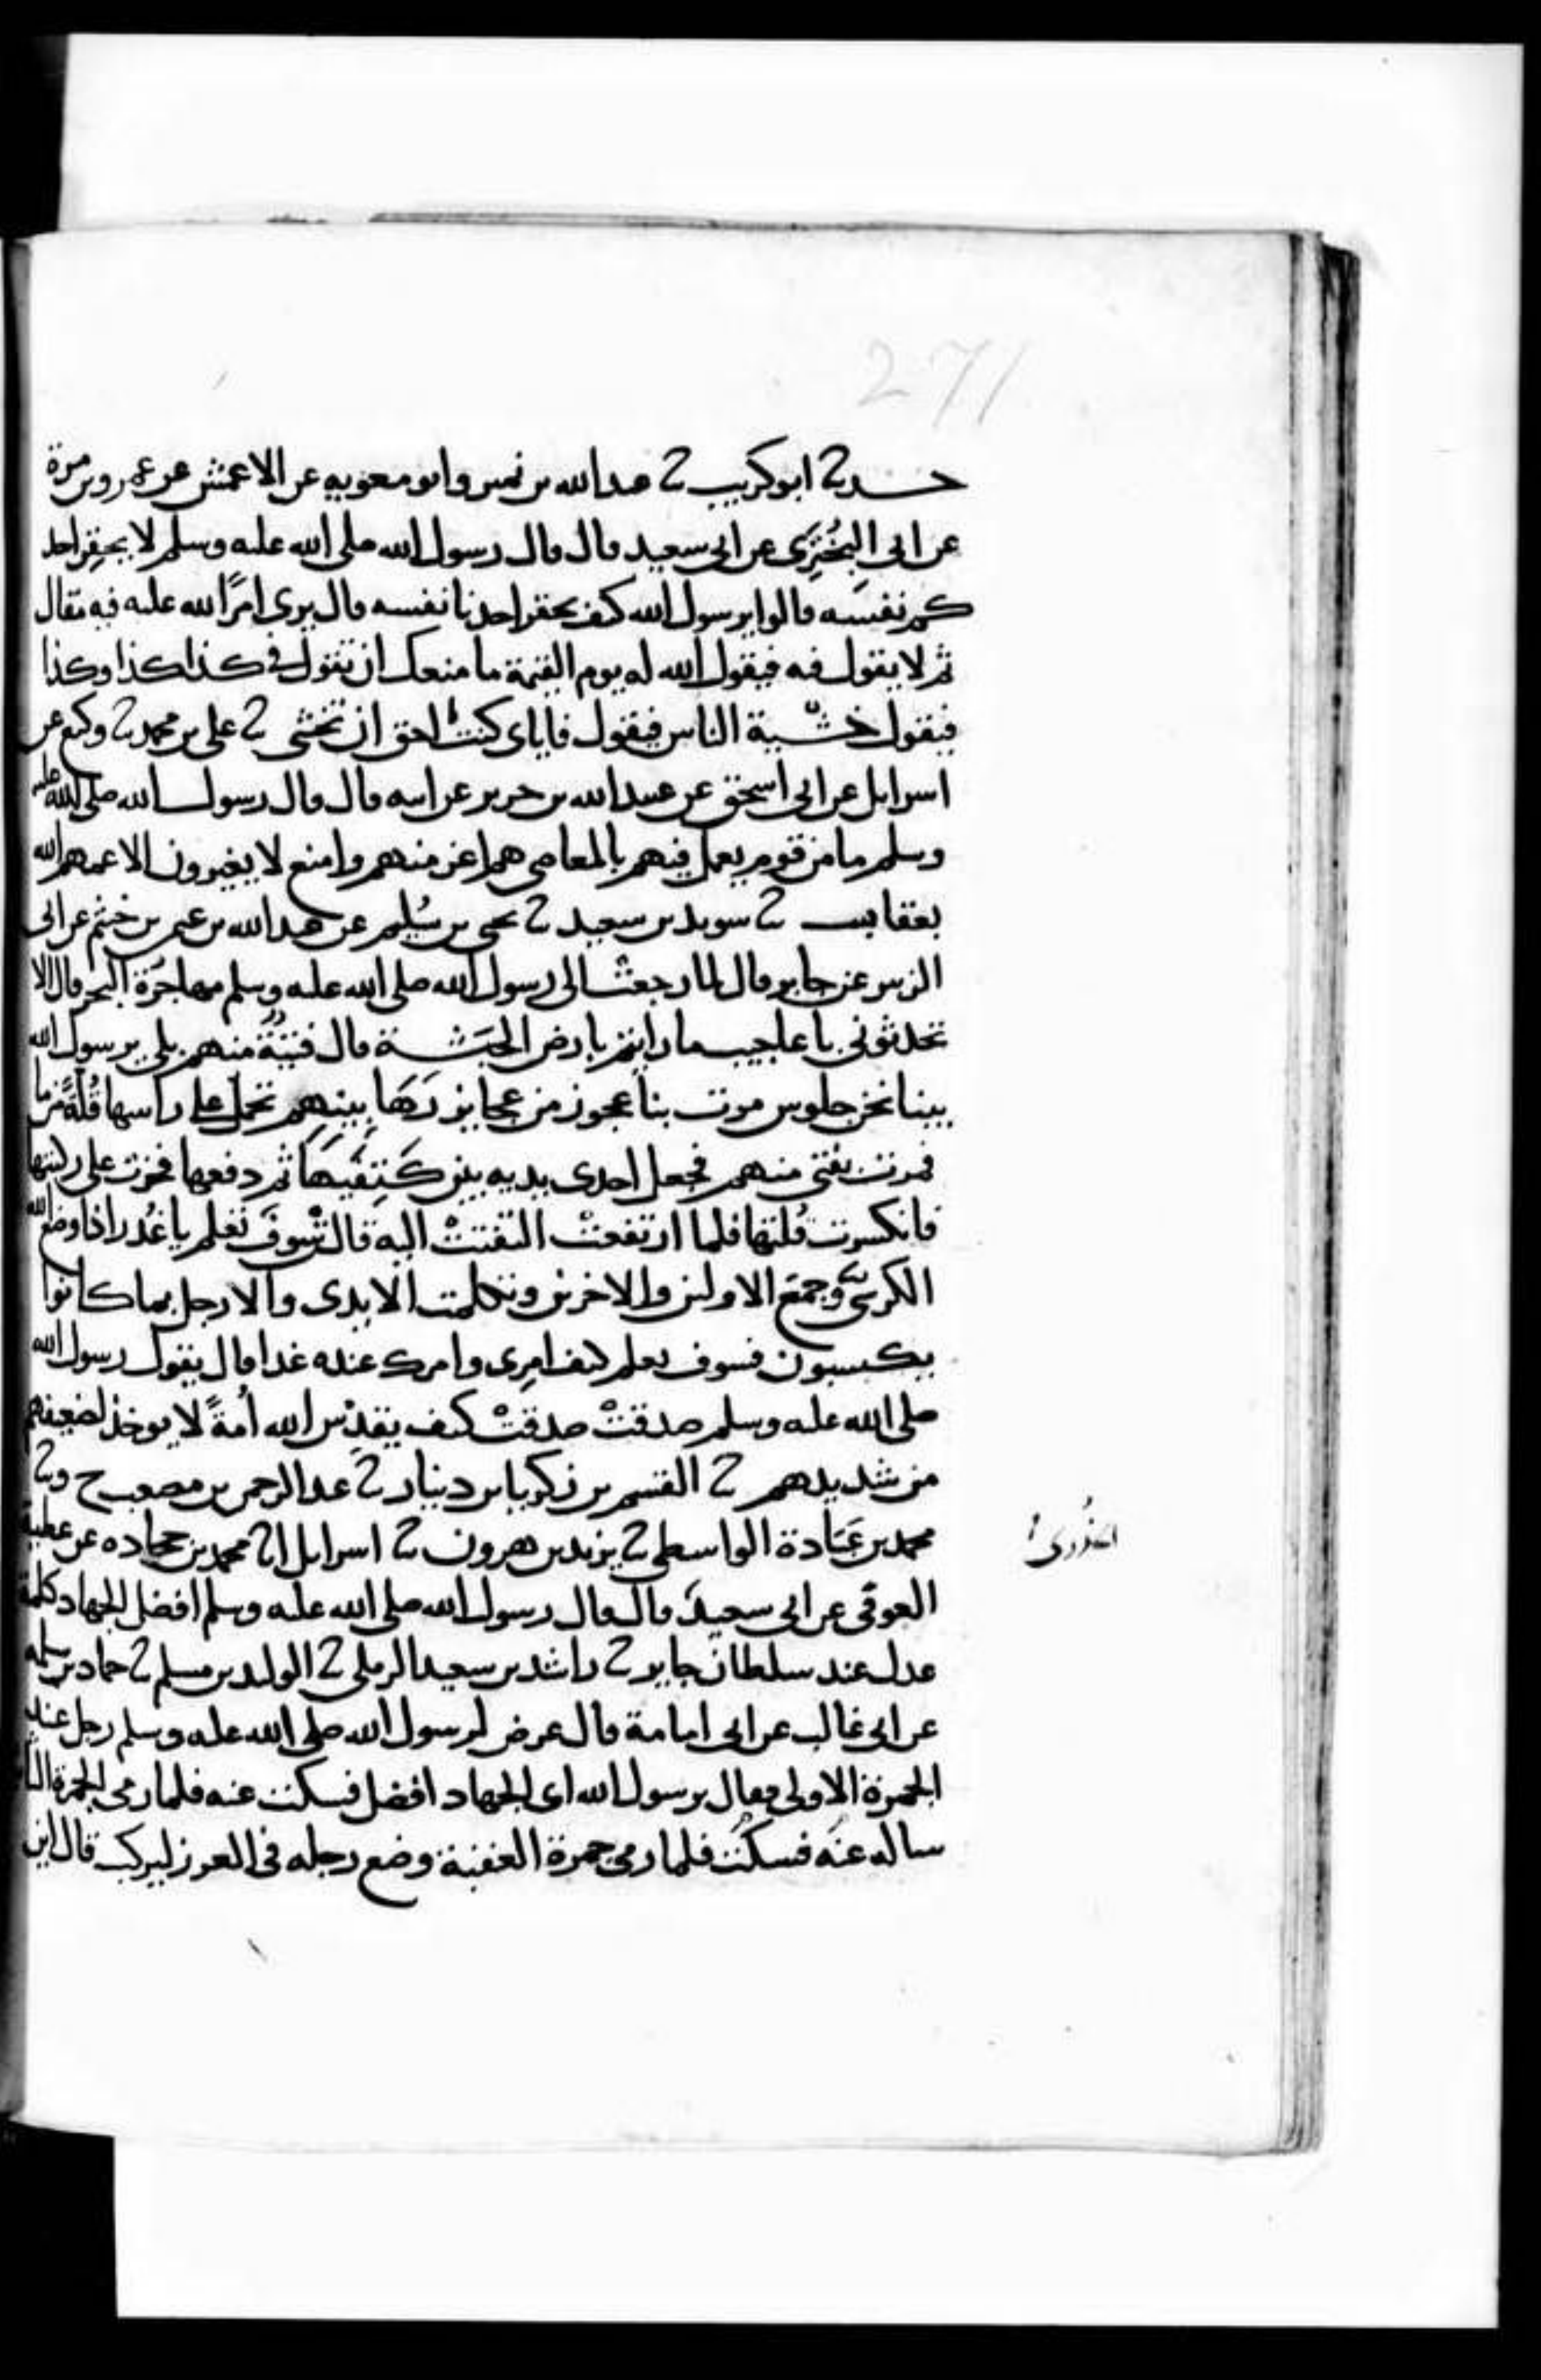 271
حدثنا ابو كريب ثنا عبدالله بن نمير وابو معوية عن الاعمش عن عمرو بن مرة
عن ابى البَخْتَرِى عن ابى سعيد قال قال رسول الله صلى الله عليه وسلم لا يحقِر احد
كم نفسَه قالوا يرسول الله كيف يحقر احدنا نفسه قال يرى امرًا لله عليه فيه مقال
ثم لا يقول فيه فيقول الله له يوم القيمة ما منعك ان تقول فى كذا كذا وكذا
فيقول خشية الناس فيقول فاياى كنتُ احق ان تخشى ثنا على بن محمد ثنا وكيع عن
اسرايل عن ابى اسحق عن عبيد الله بن جرير عن ابيه قال قال رسول الله صلى الله عليه
وسلم ما من قوم يعمل فيهم بالمعاصى هم اعز منهم وامنع لا يغيرون الا عمهم الله
بعقاب ثنا سويد بن سعيد ثنا يحيى بن سُليم عن عبدالله بن عثمن بن خثيم عن ابى
الزبير عن جابر قال لما رجعت الى رسول الله صلى الله عليه وسلم مهاجرَة البحر قال الا
تحدثونى باعاجيب ما رايتم بارض الحبَشة قال فتيةٌ منهم بلى يرسول الله
بينا نحن جلوس مرت بنا عجوز من عجايز رَهَابينهم تحمل على راسها قُلةً من ما
فمرت بفتى منهم فجعل احدى يديه بين كَتِفَيهَا ثم دفعها فخرت على ركبتها
فانكسرت قُلتها فلما ارتفعتْ التفتتْ اليه قالت سَوفَ تعلم يا غُدر اذا وضع الله
الكرسىَّ وجمَع الاولين والاخرين وتكلمت الايدى والارجل بما كانوا
يكسبون فسوف تعلم كيف امرِى وامرك عنده غدا قال يقول رسول الله
صلى الله عليه وسلم صدقتْ صدقتْ كيف يقدِّس الله اُمةً لا يوخذ لضعيفهم
من شديدهم ثنا القسم بن زكريا بن دينار ثنا عبد الرحمن بن مصعب ح وثنا
محمد بن عَبَادة الواسطى ثنا يزيد بن هرون ثنا اسرايل انا محمد بن جحاده عن عطية
العوفى عن ابى سعيد قال قال رسول الله صلى الله عليه وسلم افضل الجهاد كلمة
الخُدرى
عدل عند سلطان جاير ثنا راشد بن سعيد الرملى ثنا الوليد بن مسلم ثنا حماد بن سلمه
عن ابى غالب عن ابى امامة قال عرض لرسول الله صلى الله عليه وسلم رجل عند
الجمرة الاولى فقال يرسول الله اى الجهاد افضل فسكت عنه فلما رمى الجمرة
ساله عنه فسكت فلما رمى جمرة العقبة وضع رجله فى الغرز ليركب قال اين